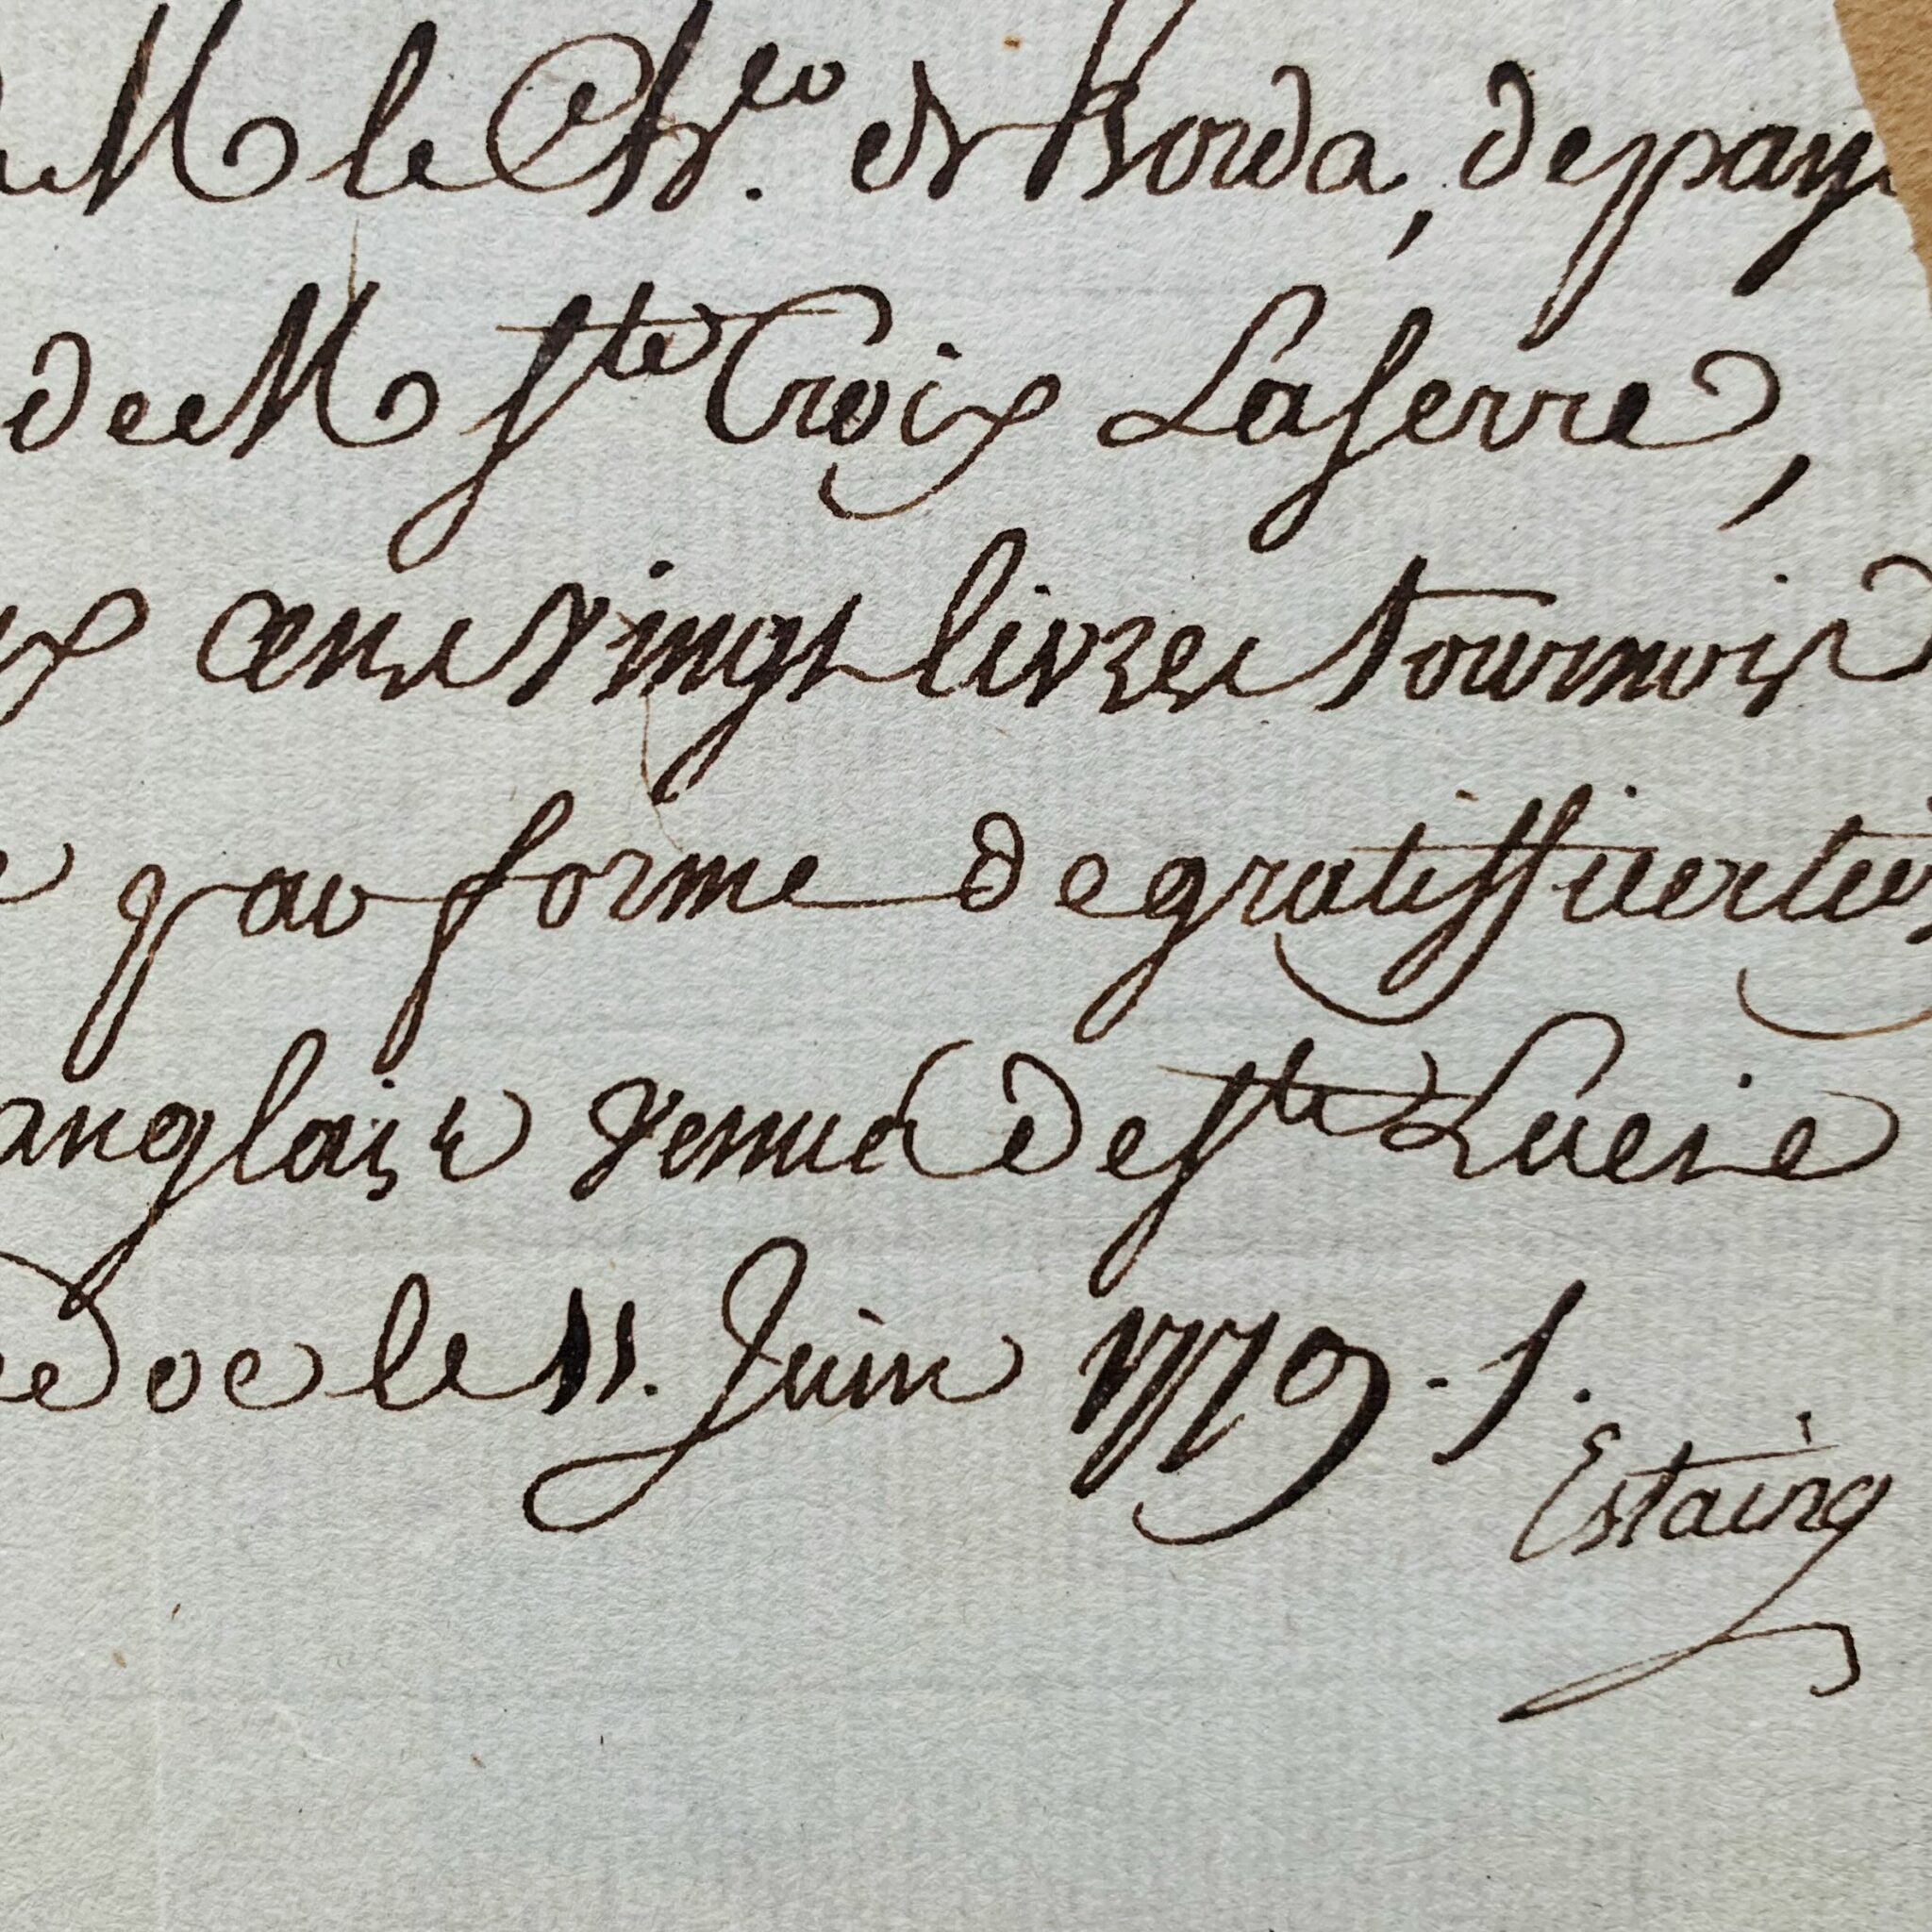 M le Ch.er de Borda, de paye
de M Ste Croix Laserre,
x cens vingt livres tournois
par forme de gratiffication
anglais venud de Ste Lucie
doc le 11. Juin 1779. /.
Estaing